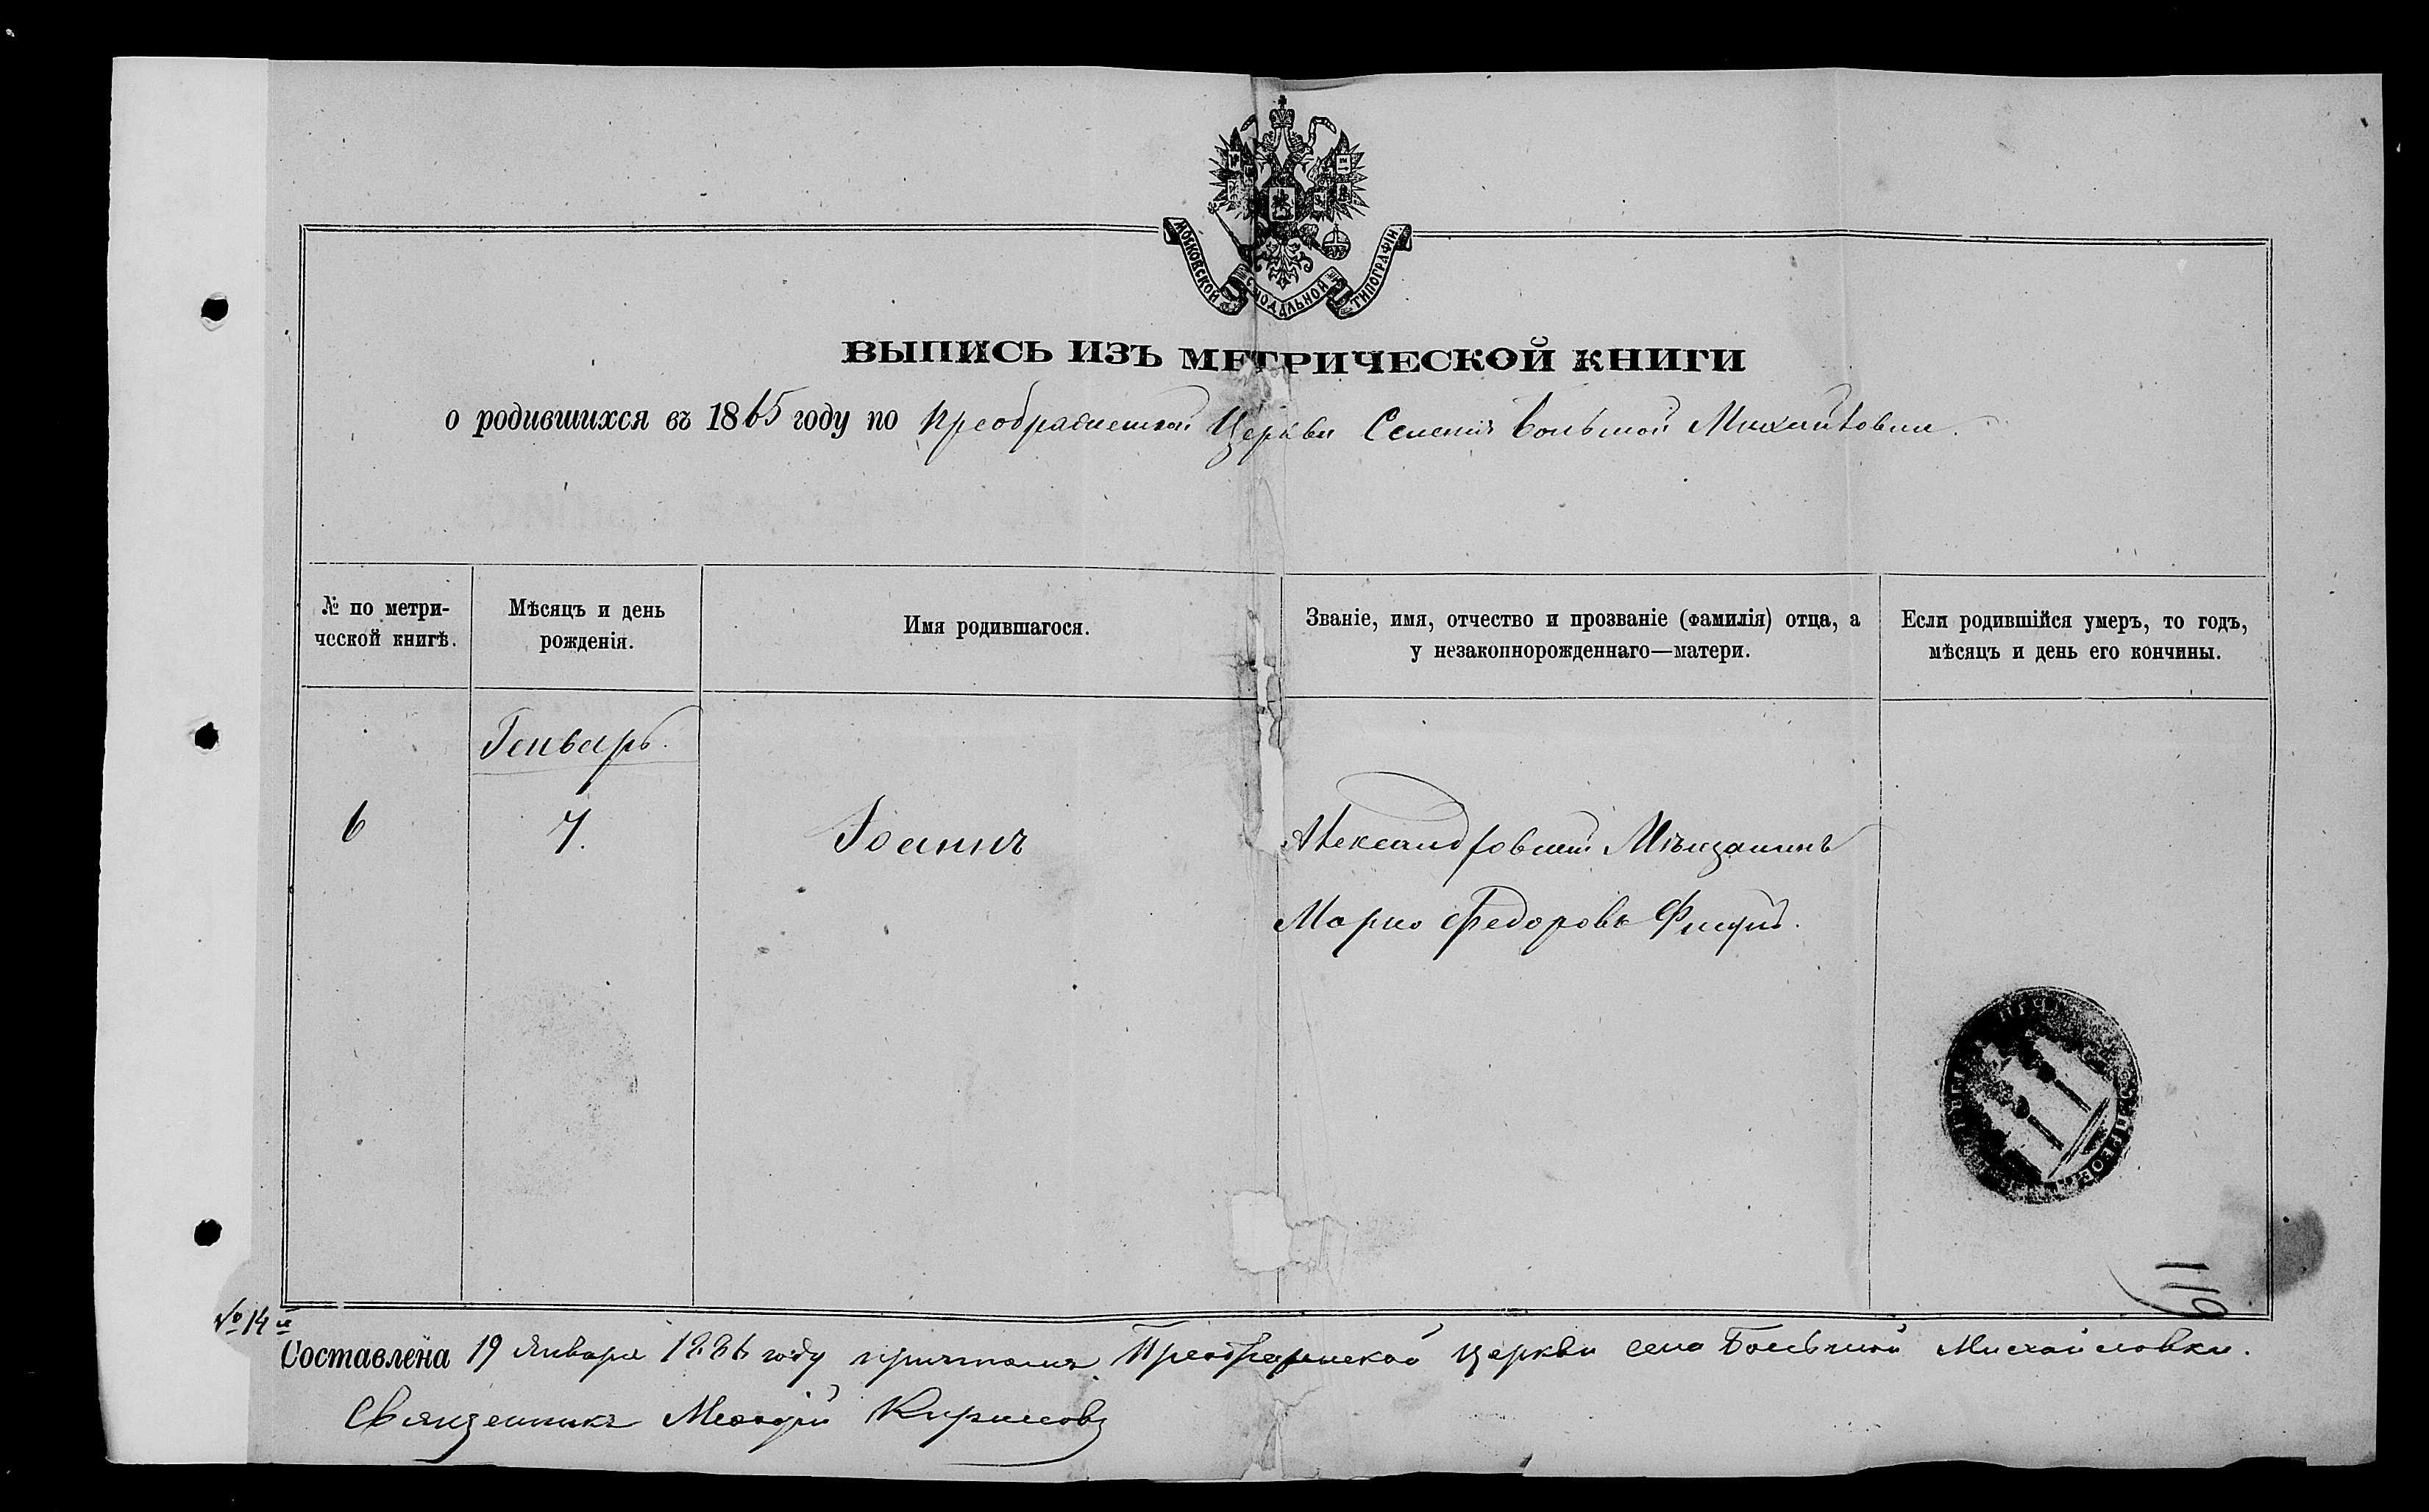 МОСКОВСКОЙ СѴНОДАЛЬНОЙ ТИПОГРАФІИ
ВЫПИСЬ ИЗЪ МЕТРИЧЕСКОЙ КНИГИ
о родившихся въ 1865 году по Преображенской Церкви Селенія Большой Михайловки.
№ по метри-
ческой книгѣ.
Мѣсяцъ и день
рожденія.
Имя родившагося.
Званіе, имя, отчество и прозваніе (фамилія) отца, а
у незаконнорожденнаго—матери.
Если родившійся умеръ, то годъ,
мѣсяцъ и день его кончины.
Генварь.
6
7.
Іоаннъ
Александровскій Мѣщанинъ
Марко Федоровъ
116
№ 14й
Составлена 19 Января 1886 году причтомъ Преображенской церкви села Большой Михайловки.
Священникъ Кирилловъ